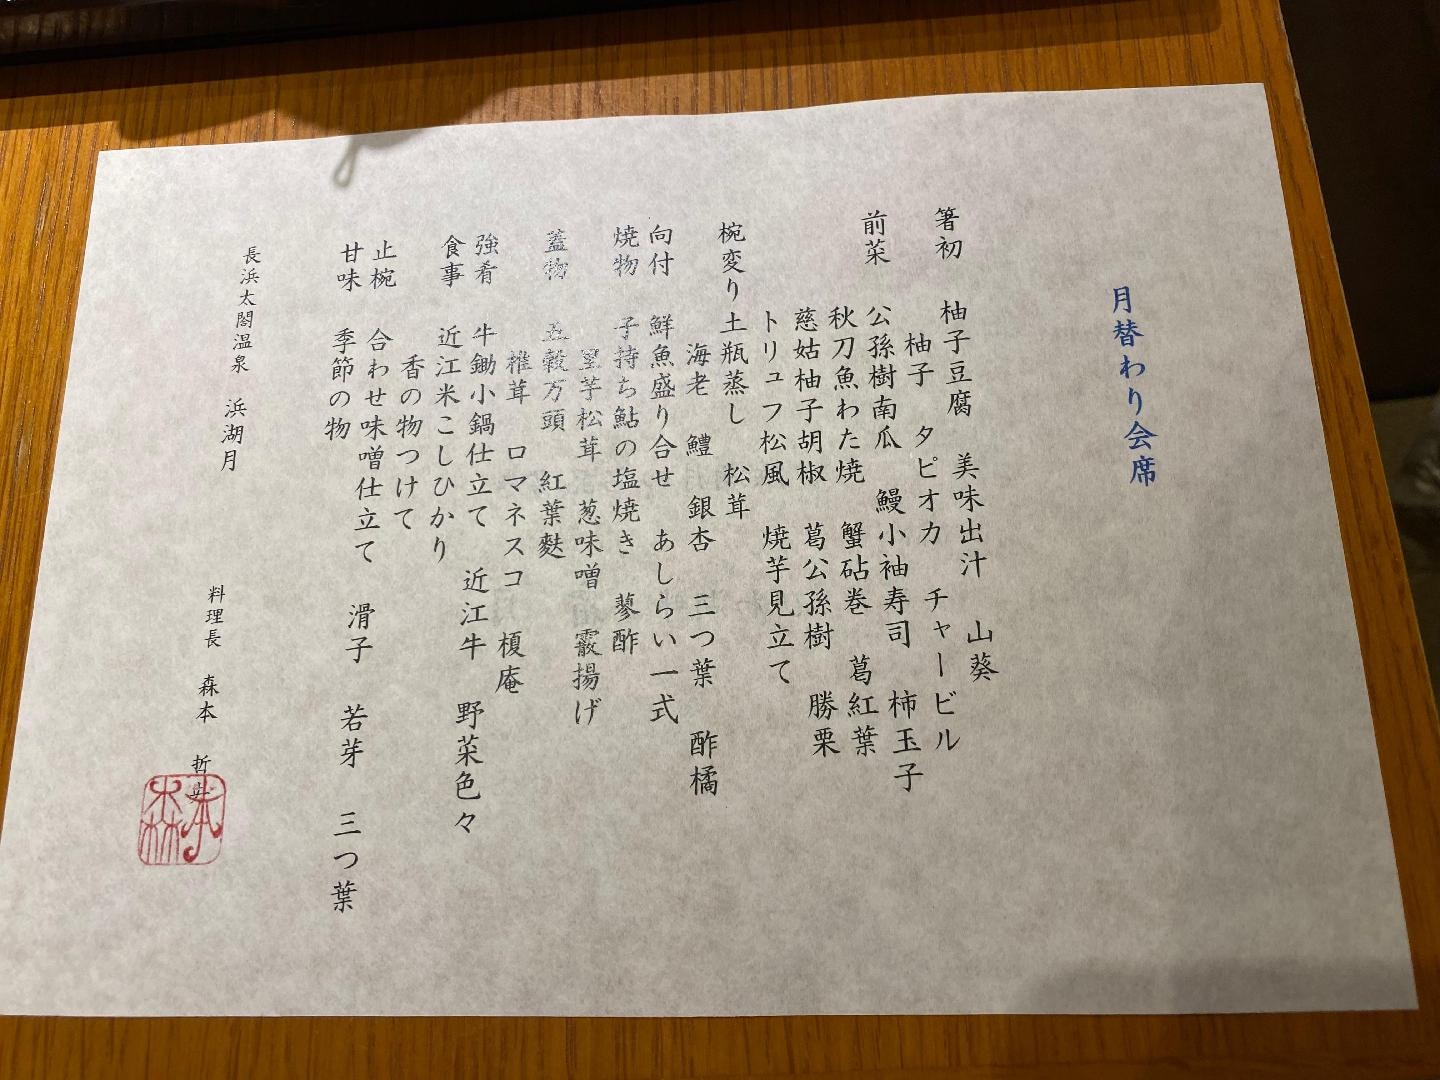 月替わり会席
箸初　柚子豆腐　美味出汁　山葵
柚子　タピオカ　チャービル
前菜　公孫樹南瓜　鰻小袖寿司　柿玉子
秋刀魚わた焼　蟹砧巻　葛紅葉
慈姑柚子胡椒　葛公孫樹　勝栗
トリュフ松風　焼芋見立て
椀変り　土瓶蒸し　松茸
海老　鱧　銀杏　三つ葉　酢橘
向付　鮮魚盛り合せ　あしらい一式
焼物　子持ち鮎の塩焼き　蓼酢
里芋松茸　葱味噌　霰揚げ
蓋物　五穀万頭　紅葉麩
椎茸　ロマネスコ　榎庵
強肴　牛鋤小鍋仕立て　近江牛　野菜色々
食事　近江米こしひかり
香の物つけて
止椀　合わせ味噌仕立て　滑子　若芽　三つ葉
甘味　季節の物
長浜太閤温泉　浜湖月
料理長　森本　哲
森本